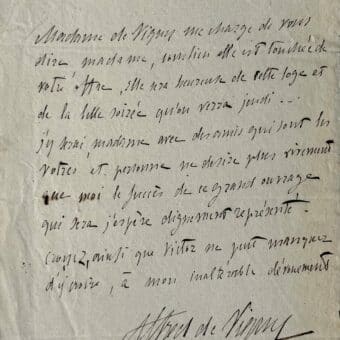 Madame de Vigny me charge de vous
dire madame, combien elle est touchée de
votre offre, elle sera heureuse de cette loge et
de la belle soirée qu'on verra jeudi...
j'y serai, madame avec des amis qui sont les
votres et personne ne desire plus vivement
que moi le succès de ce grand ouvrage
qui sera j'espère dignement représenté.
Croyez, ainsi que Victor ne peut manquer
d'y croire, à mon inaltérable dévouement
Alfred de Vigny